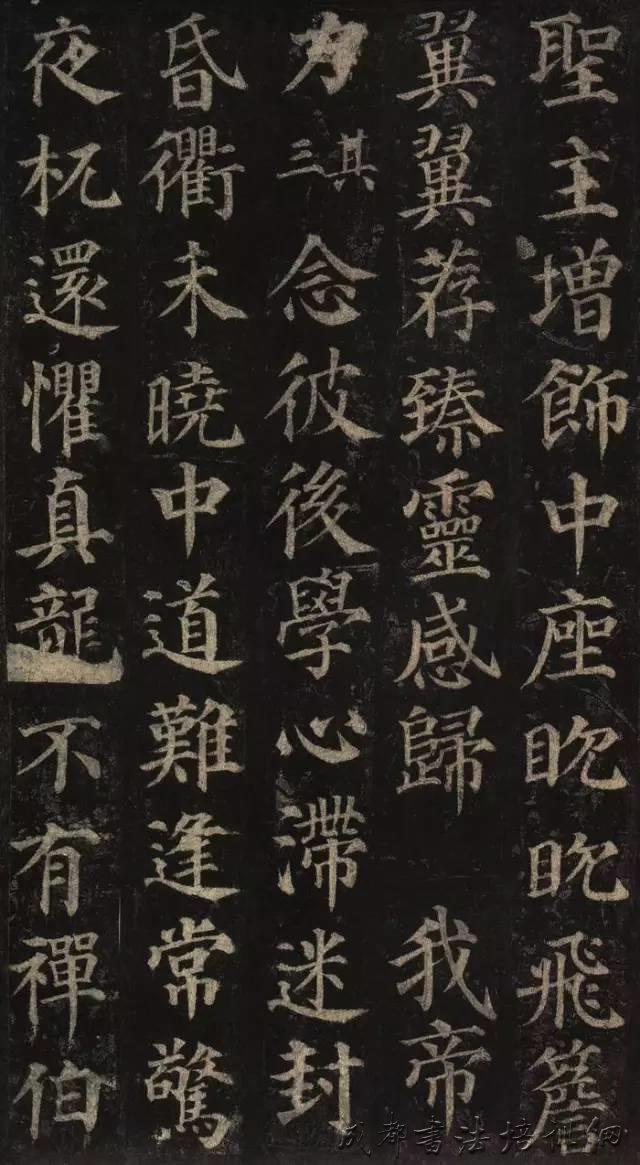 聖主增飾中座眈眈飛簷
翼翼荐臻靈感歸我帝
力其三念彼後學心滯迷封
昏衢未曉中道難逢常驚
夜杌還懼真龍不有禪伯
成都書法培訓網